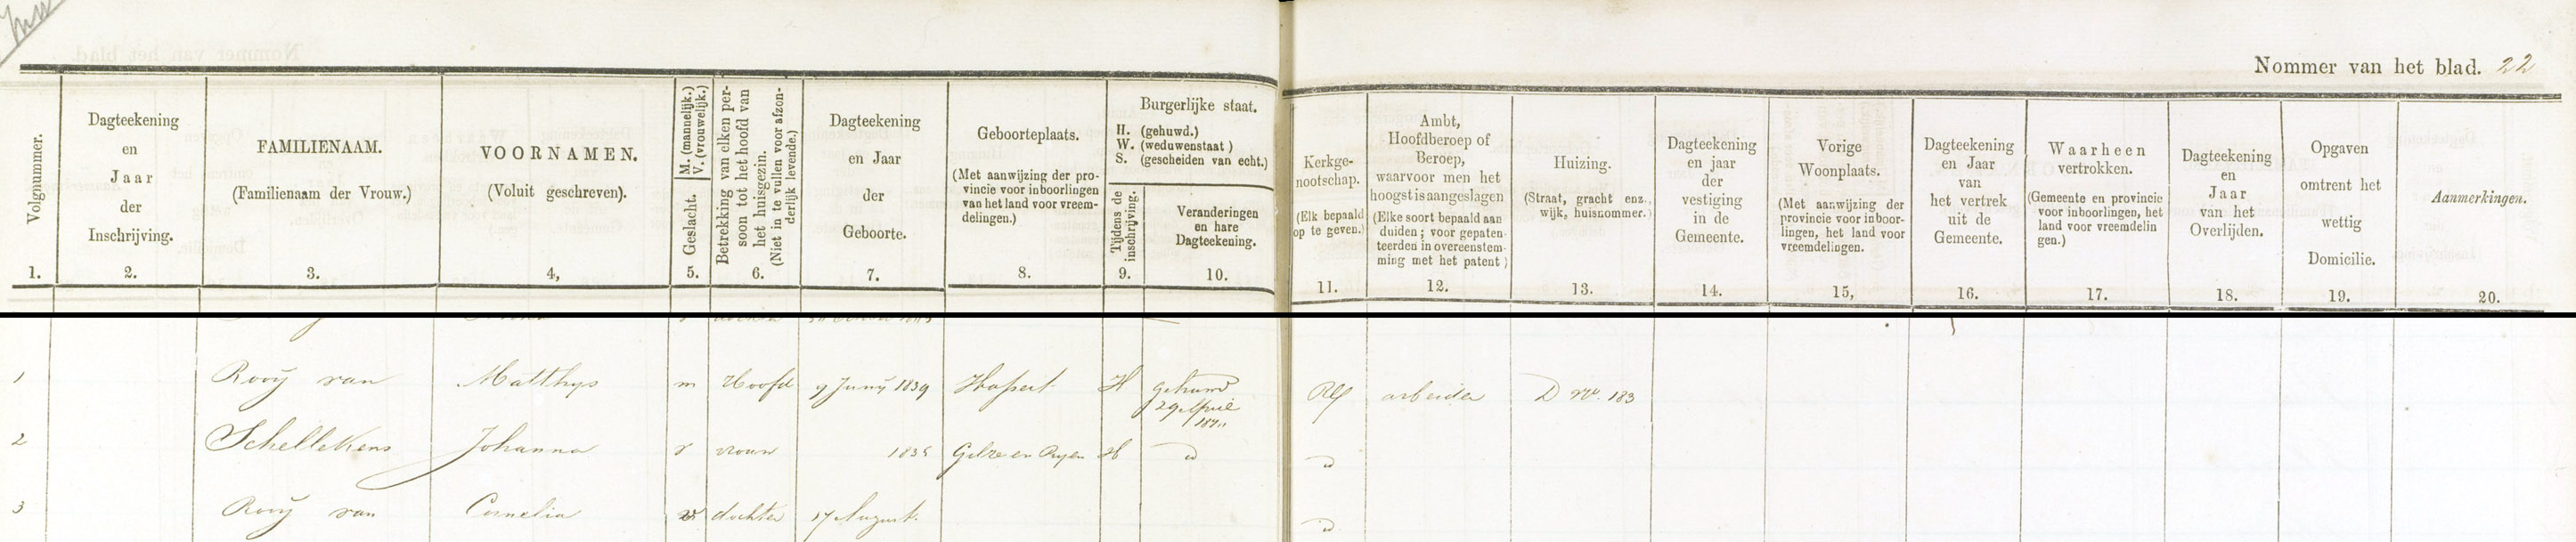 Nommer van het blad. 22
Volgnummer.
1.
Dagteekening
en
Jaar
der
Inschrijving.
2.
FAMILIENAAM.
(Familienaam der Vrouw.)
3.
VOORNAMEN.
(Voluit geschreven).
4,
Geslacht.
M. (mannelijk.)
V. (vrouwelijk.)
5.
Betrekking van elken per-
soon tot het hoofd van
het huisgezin.
(Niet in te vullen voor afzon-
derlijk levende.)
6.
Dagteekening
en Jaar
der
Geboorte.
7.
Geboorteplaats.
(Met aanwijzing der pro-
vincie voor inboorlingen
van het land voor vreem-
delingen.)
8.
Burgerlijke staat.
H. (gehuwd.)
W. (weduwenstaat)
S. (gescheiden van echt.)
Tijdens de
inschrijving.
9.
Veranderingen
en hare
Dagteekening.
10.
Kerkge-
nootschap.
(Elk bepaald
op te geven.)
11.
Ambt,
Hoofdberoep of
Beroep,
waarvoor men het
hoogst is aangeslagen
(Elke soort bepaald aan
duiden; voor gepaten-
teerden in overeenstem-
ming met het patent)
12.
Huizing.
(Straat, gracht enz.,
wijk, huisnommer.)
13.
Dagteekening
en jaar
der
vestiging
in de
Gemeente.
14.
Vorige
Woonplaats.
(Met aanwijzing der
provincie voor inboor-
lingen, het land voor
vreemdelingen.
15,
Dagteekening
en Jaar
van
het vertrek
uit de
Gemeente.
16.
Waarheen
vertrokken.
(Gemeente en provincie
voor inboorlingen, het
land voor vreemdelin
gen.)
17.
Dagteekening
en
Jaar
van het
Overlijden.
18.
Opgaven
omtrent het
wettig
Domicilie.
19.
Aanmerkingen.
20.
1 Rooÿ van Matthys m Hoofd 9 Junÿ 1839 Hapert H gehuwd
29 April
arbeider D No. 183
2 Schellekens Johanna v vrouw 1835 Gilze en Ryen H d
d
3 Rooÿ van Cornelia v dochter 17 August.
d